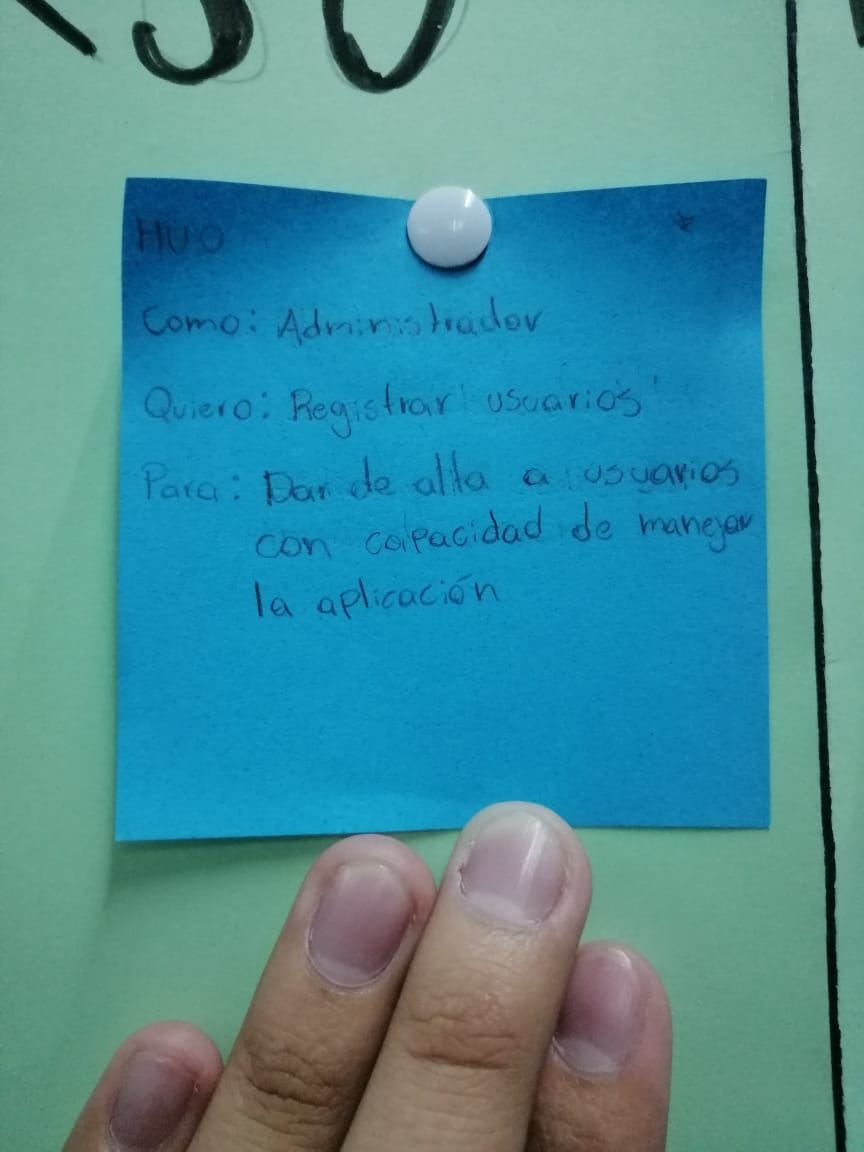 SO
HU0
Como: Administrador
Quiero: Registrar usuarios
Para: Dar de alta a usuarios
con capacidad de manejar
la aplicación